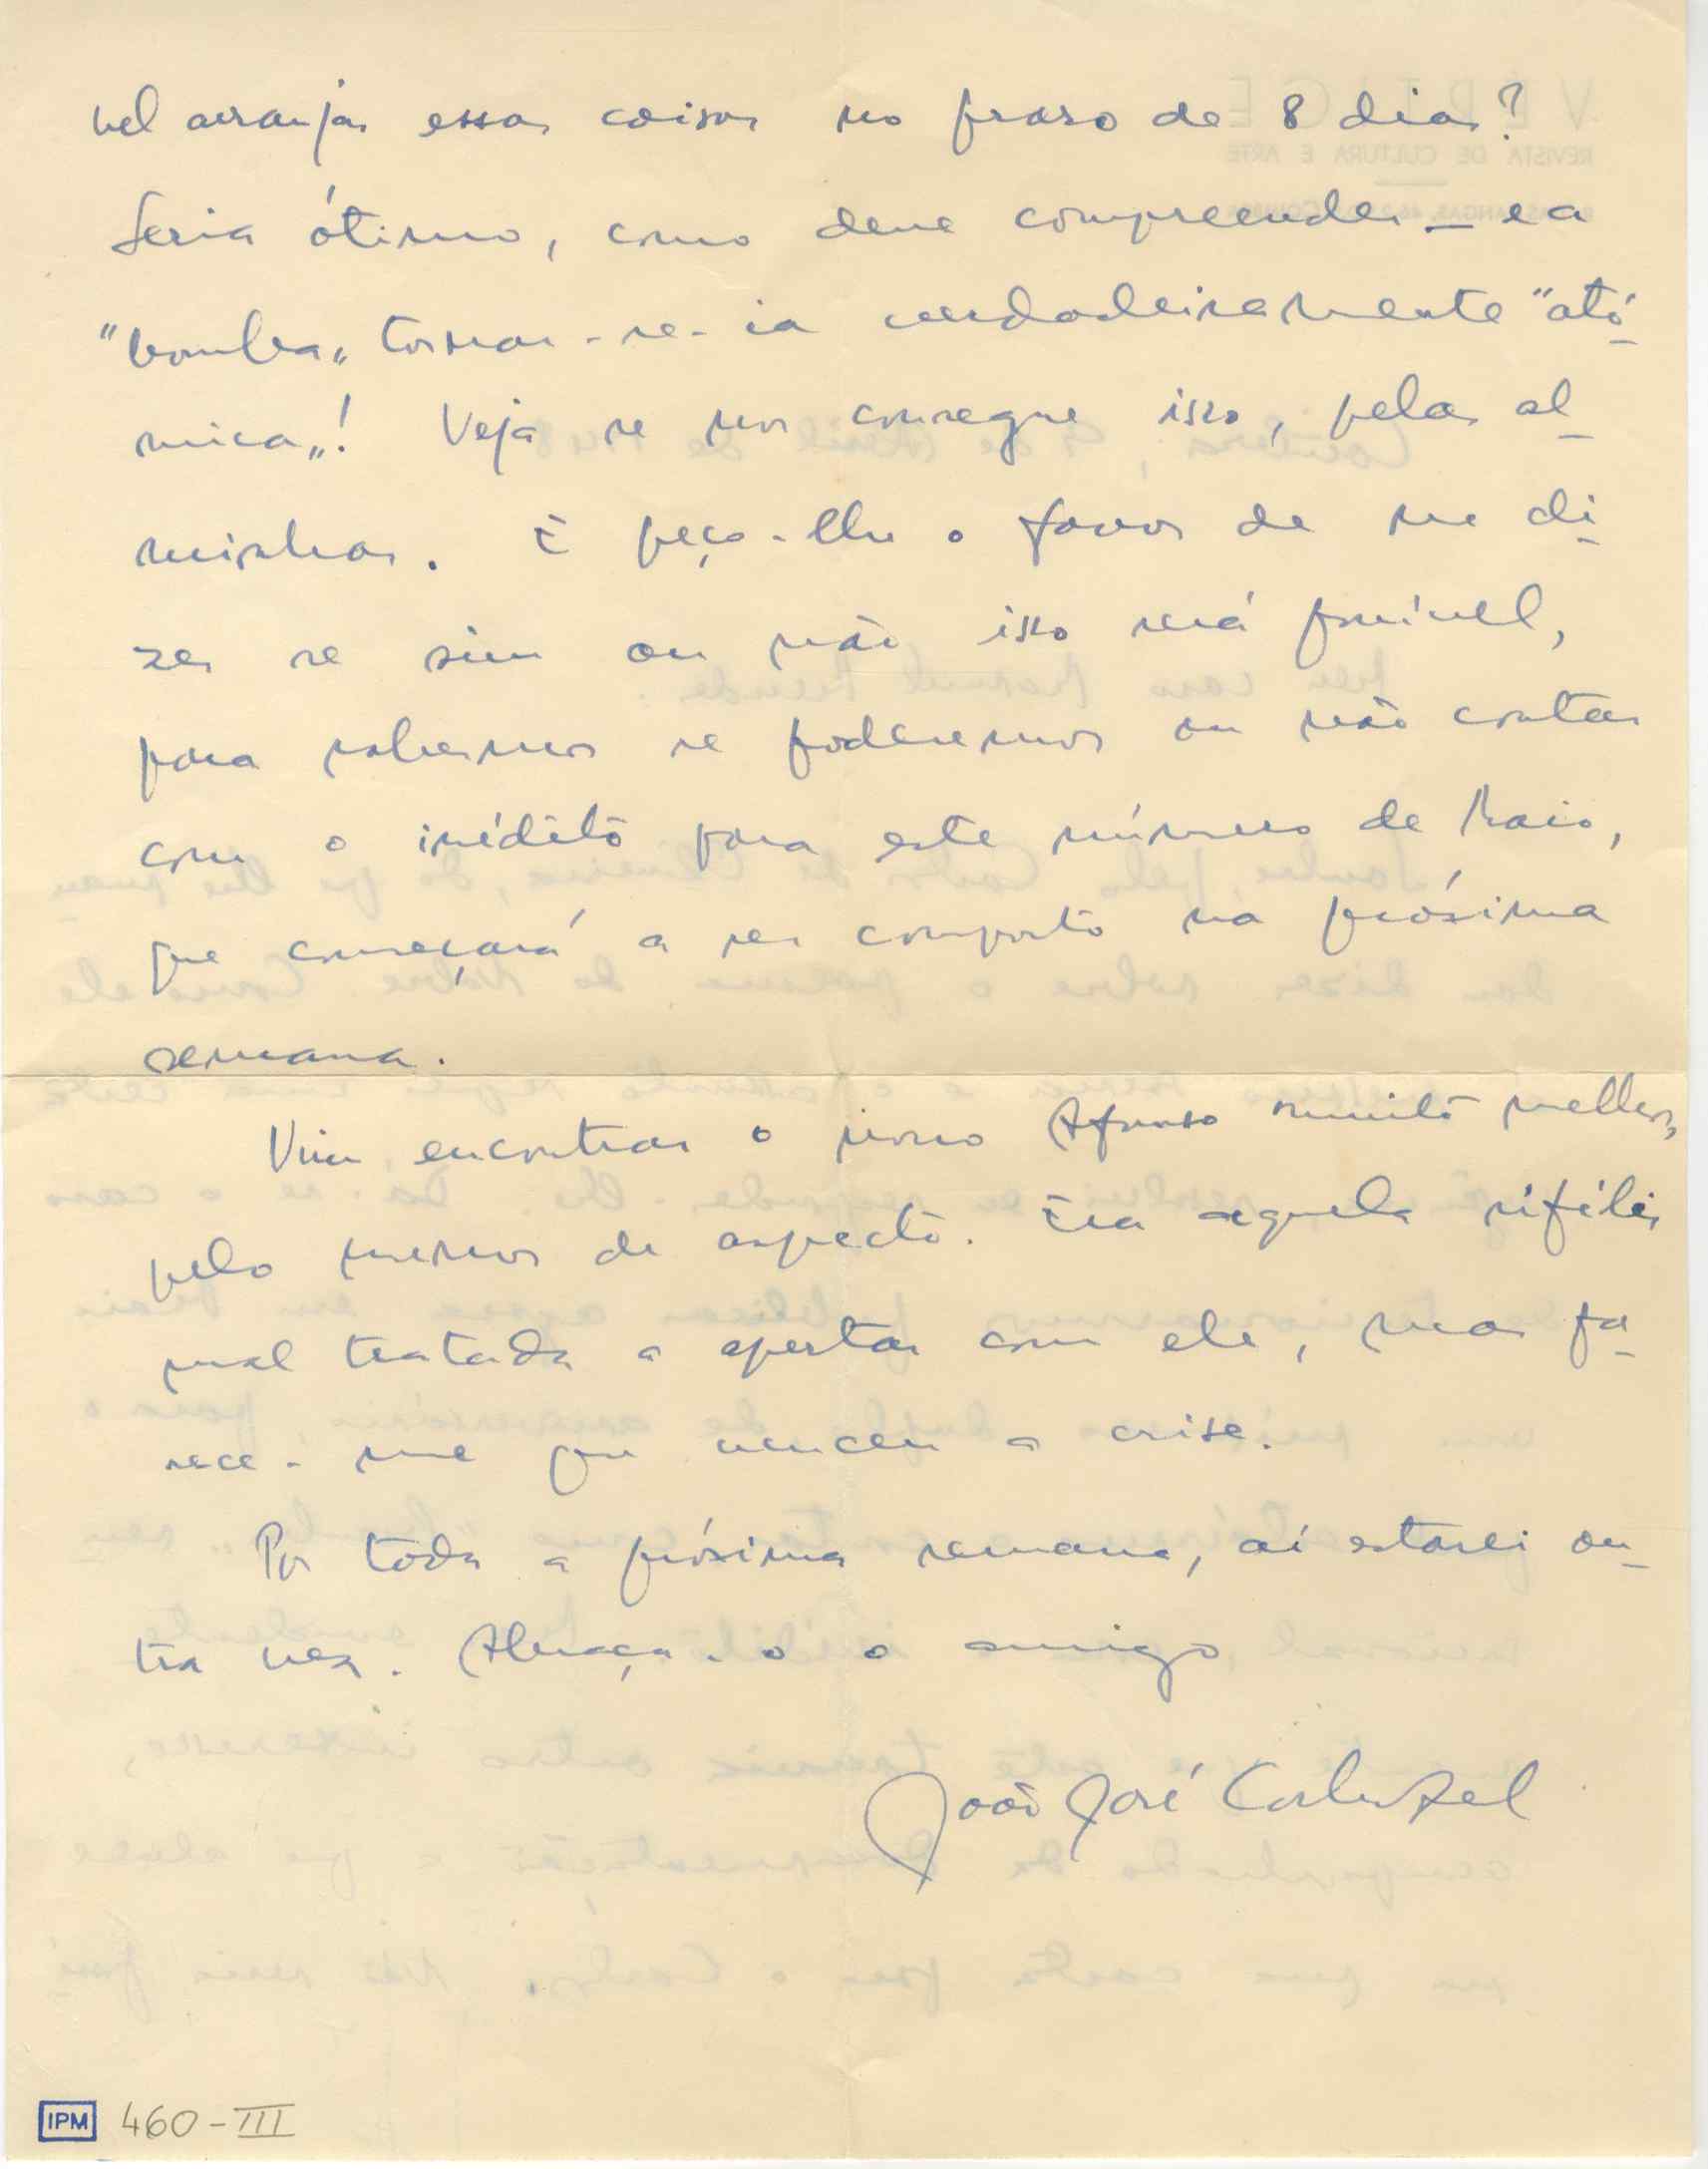 vel arranjar essas coisas no praso de 8 dias?
Seria ótimo, como deve compreender – e a
"bomba„ tornar-se-ia verdadeiramente "ató-
mica„! Veja se nos consegue isso, pelas al-
minhas. E peço-lhe o favor de me di-
zer se sim ou não isso será possível,
para sabermos se poderemos ou não contar
com o inédito para este número de Maio,
que começará a ser composto na próxima
semana.
Vim encontrar o nosso Afonso muito melhor,
pelo menos de aspecto. Era aquela sífilis
mal tratada a apertar com ele, mas pa-
rece-me que venceu a crise.
Por toda a próxima semana, aí estarei ou-
tra vez. Abraça-o o amigo
João José Cochofel
IPM 460-III